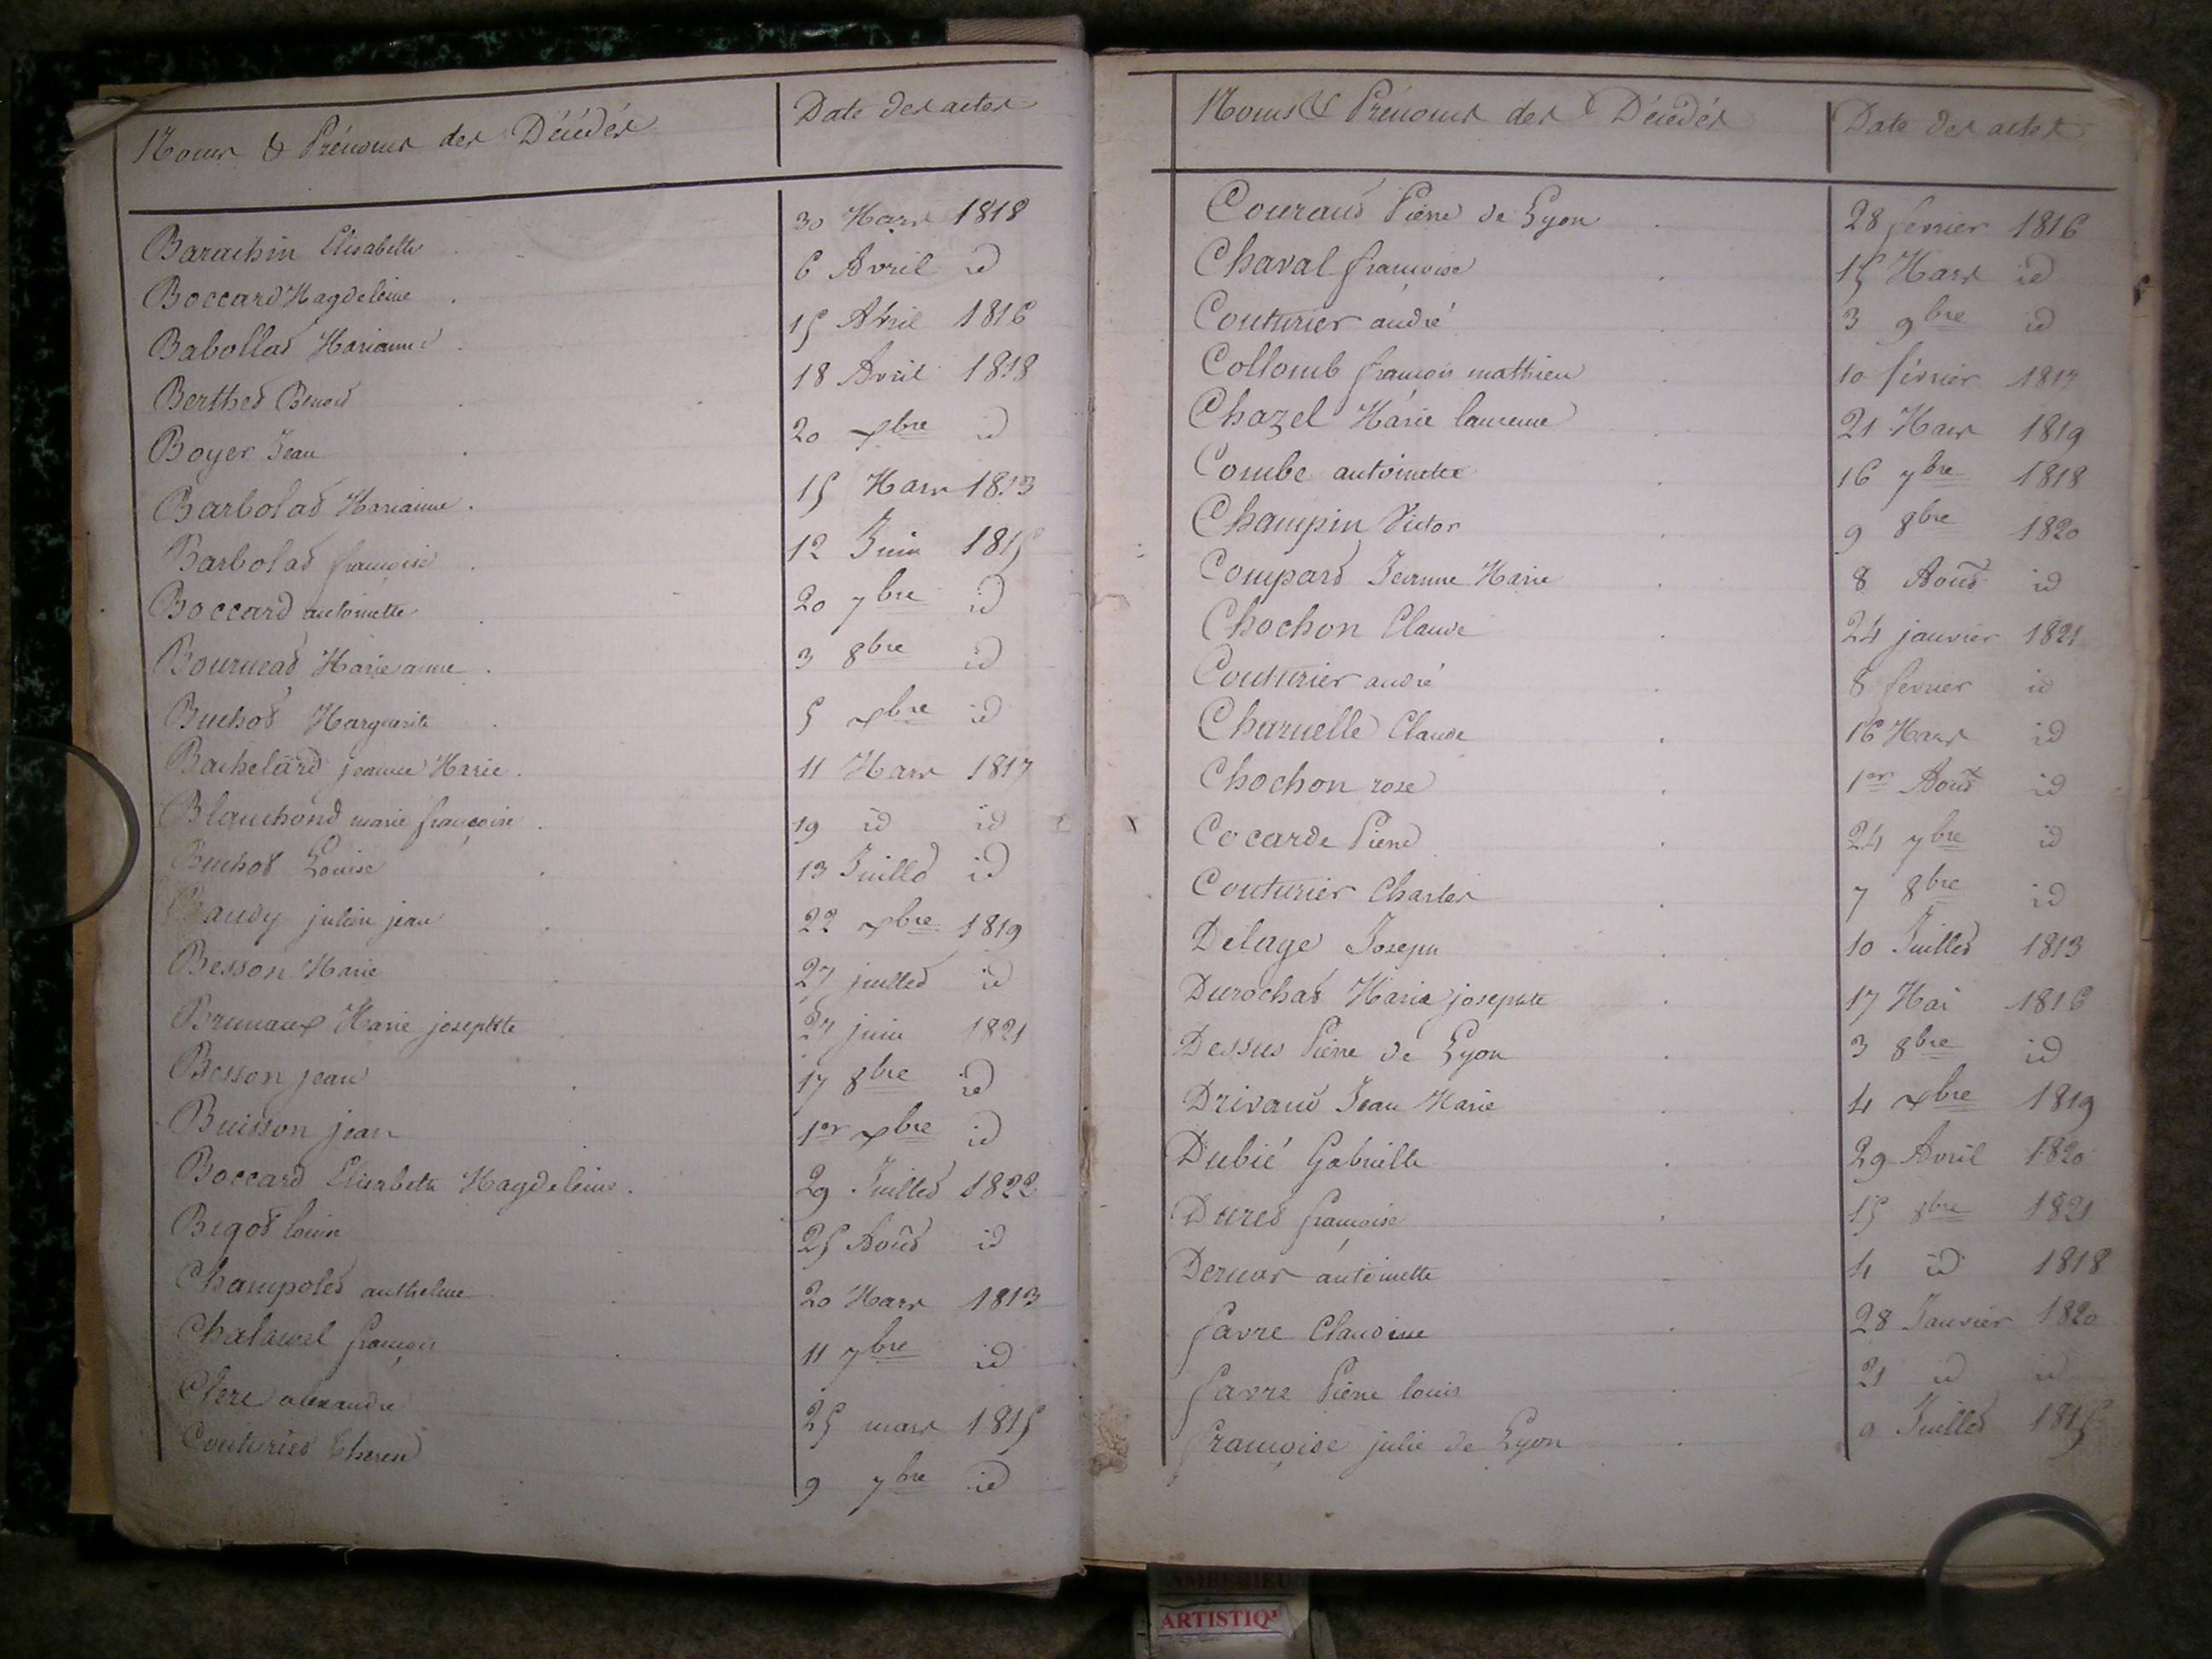 Noms & Prénoms des Décédés Date des actes
Barachin Elisabeth 30 Mars 1818
Boccard Magdeleine 6 Avril id
Babollat Marianne 15 Avril 1816
Berthet Benoit 18 Avril 1818
Boyer Jean 20 xbre id
Barbolat Marianne 15 Mars 1813
Barbolat françoise 12 Juin 1815
Boccard antoinette 20 7bre id
Bournead Marie anne 3 8bre id
Buchot Marguerite 5 xbre id
Bachelard jeanne Marie 11 Mars 1817
Blanchond marie françoise 19 id id
Buchot Louise 13 Juillet id
julien jean 22 xbre 1819
Besson Marie 27 juillet id
Brunaux Marie josephte 27 juin 1821
Besson jean 17 8bre id
Buisson jean 1er xbre id
Boccard Elisabeth Magdeleine 29 Juillet 1822
Bigot louis 25 Août id
Champolet anthelme 20 Mars 1813
Chalawel françois 11 7bre id
Clerc alexandre 25 mars 1815
9 7bre id
Noms & Prénoms des Décédés Date des actes
Couraud Pierre de Lyon 28 fevrier 1816
Chaval françoise 15 Mars id
Couturier andré 3 9bre id
Collomb françois mathieu 10 février 1817
Chazel Marie laurence 21 Mars 1819
Combe antoinette 16 7bre 1818
Champin Victor 9 8bre 1820
Compard Jeanne Marie 8 Août id
Chochon Claude 24 janvier 1821
Couturier andré 8 fevrier id
Charuelle Claude 16 Mars id
Chochon rose 1er Août id
Cocarde Pierre 24 7bre id
Couturier Charles 7 8bre id
Delage Joseph 10 Juillet 1813
Durochat Marie josephte 17 Mai 1816
Dessus Pierre de Lyon 3 8bre id
Drivaud Jean Marie 4 xbre 1819
Dubié Gabrielle 29 Avril 1820
Duret françoise 15 8bre 1821
Dernar antoinette 4 id 1818
favre Claudine 28 Janvier 1820
favre Pierre louis 21 id id
françoise julie de Lyon 9 Juillet
AMBERIEU
ARTISTIQ